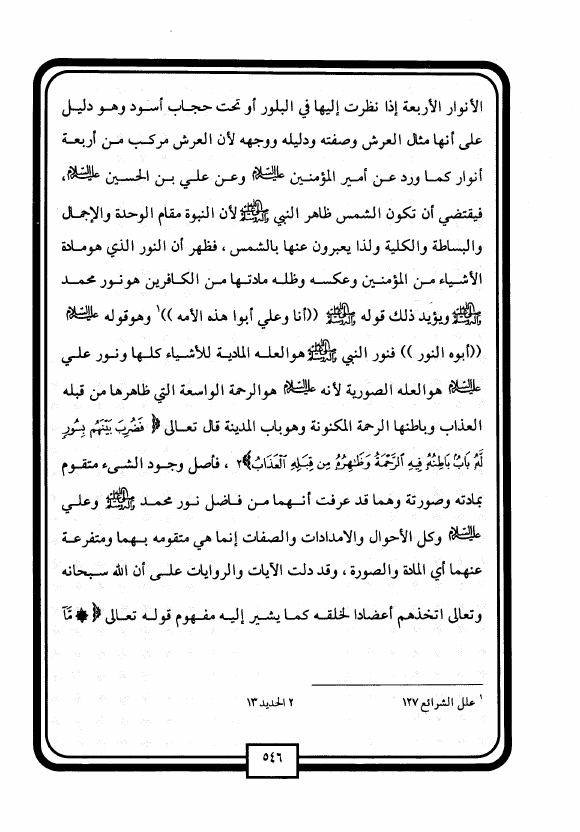 الأنوار الأربعة إذا نظرت إليها في البلور أو تحت حجاب أسود وهو دليل
على أنها مثال العرش وصفته ودليله ووجهه لأن العرش مركب من أربعة
أنوار كما ورد عن أمير المؤمنين عليه السلام وعن علي بن الحسين عليه السلام ،
فيقتضي أن تكون الشمس ظاهر النبي صلى الله عليه وآله وسلم لأن النبوة مقام الوحدة والإجمال
والبساطة والكلية ولذا يعبرون عنها بالشمس ، فظهر أن النور الذي هومادة
الأشياء من المؤمنين وعكسه وظله مادتها من الكافرين هونور محمد
صلى الله عليه وآله وسلم ويؤيد ذلك قوله صلى الله عليه وآله وسلم ((أنا وعلي أبوا هذه الأمه ))١ وهوقوله عليه السلام
((أبوه النور )) فنور النبي صلى الله عليه وآله وسلم هوالعله المادية للأشياء كلها ونور علي
عليه السلام هوالعله الصورية لأنه عليه السلام هوالرحمة الواسعة التي ظاهرها من قبله
العذاب وباطنها الرحمة المكنونة وهوباب المدينة قال تعالى ﴿ فَضُرِبَ بَيْنَهُم بِسُورٍ
لَّهُ بَابٌ بَاطِنُهُ فِيهِ الرَّحْمَةُ وَظَاهِرُهُ مِن قِبَلِهِ الْعَذَابُ﴾٢ ، فأصل وجود الشيء متقوم
بمادته وصورتة وهما قد عرفت أنهما من فاضل نور محمد صلى الله عليه وآله وسلم وعلي
عليه السلام وكل الأحوال والامدادات والصفات إنما هي متقومه بهما ومتفرعة
عنهما أي المادة والصورة ، وقد دلت الآيات والروايات على أن الله سبحانه
وتعالى اتخذهم أعضادا لخلقه كما يشير إليه مفهوم قوله تعالى ﴿ ۞ مَّآ
١ علل الشرائع ١٢٧ ٢ الحديد ١٣
٥٤٦